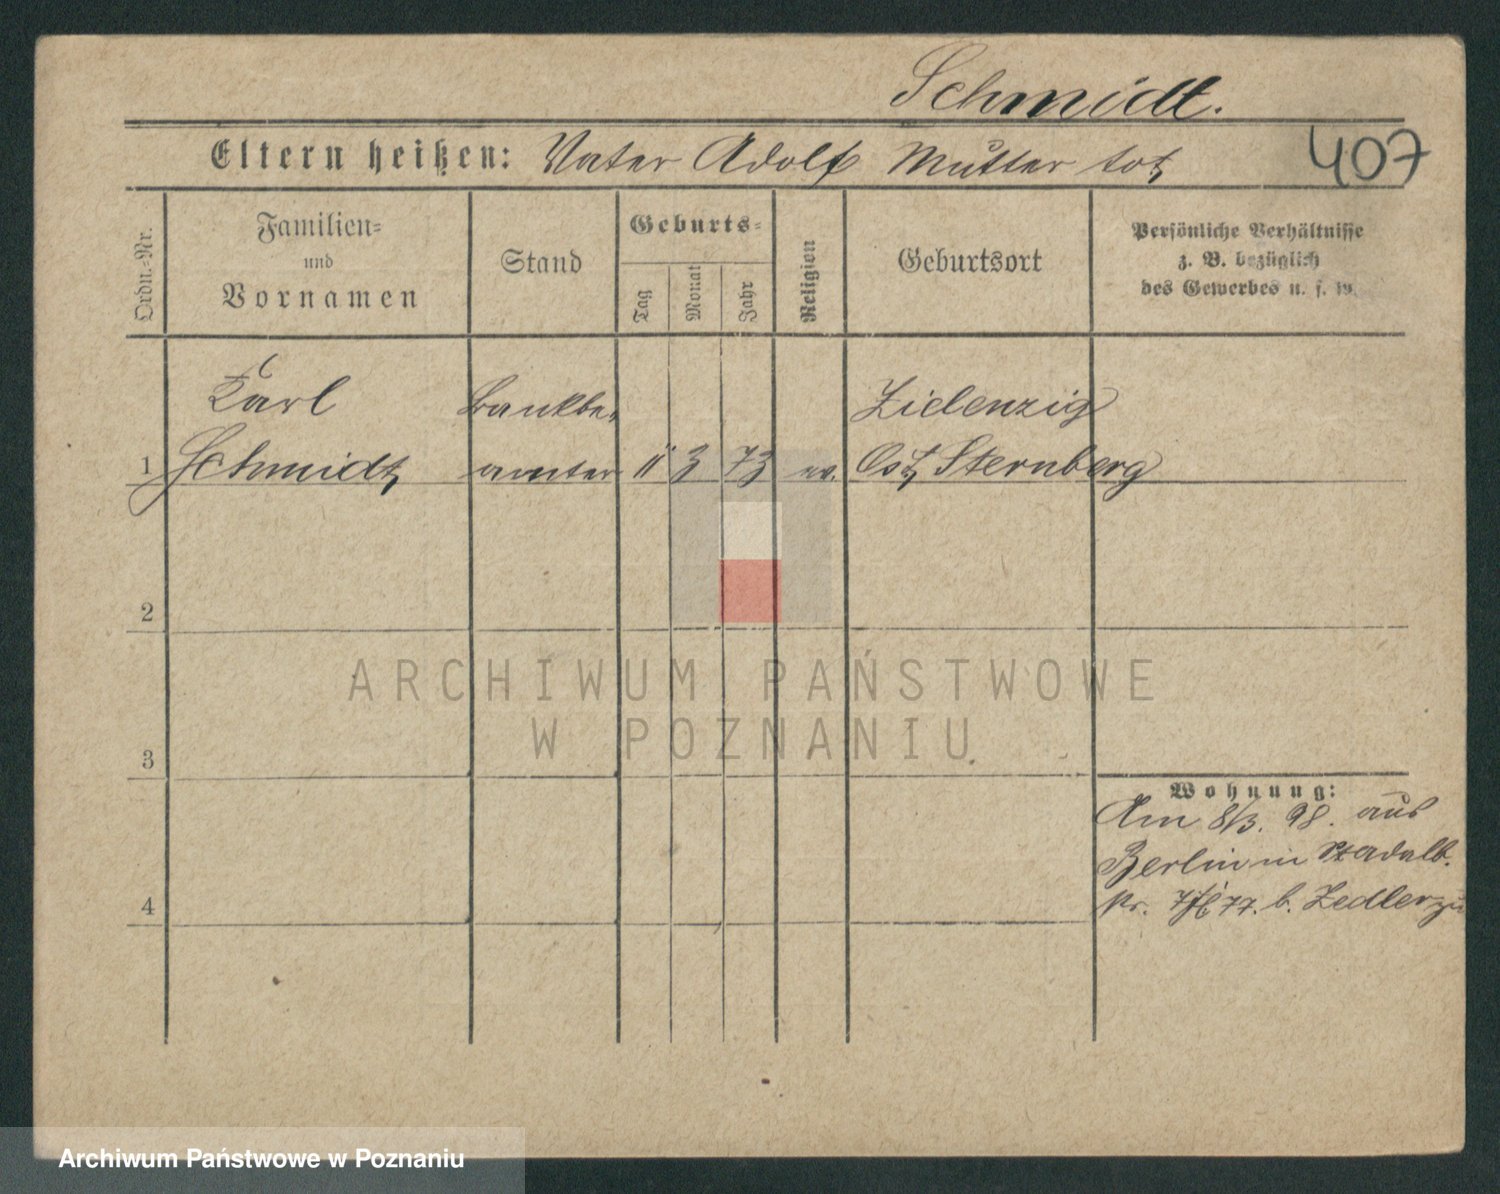 Schmidt.
407
Eltern heißen: Vater Adolf Mutter tot
Ordn.-Nr.
Familien-
und
Vornamen
Stand
Geburts-
Tag
Monat
Jahr
Religion
Geburtsort
Persönliche Verhältnisse
z. B. bezüglich
des Gewerbes u. s. w.
Karl Bankbe- Zielenzig
1 Schmidt amter 11 3 73 ev. Ost Sternberg
2
ARCHIWUM PAŃSTWOWE
W POZNANIU
3
Wohnung:
Am 8/3. 98. aus
Berlin in
4
77. b. Zedler zu
Archiwum Państwowe w Poznaniu